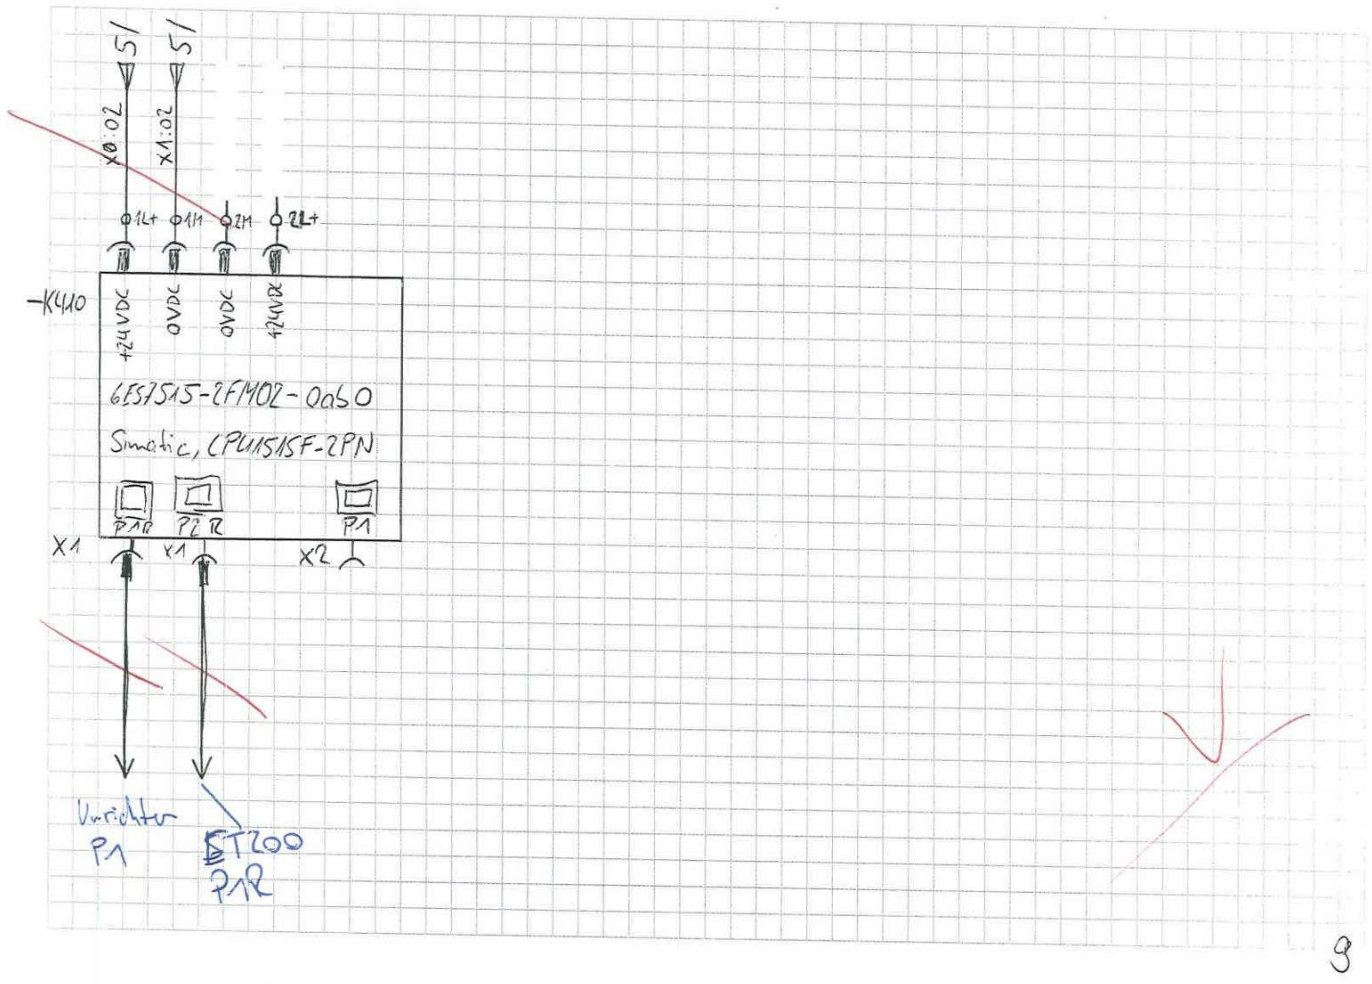 5/ 5/
X0:02 X1:02
1L+ 1M 2M 2L+
-K410
+24VDC 0VDC 0VDC +24VDC
6ES7515-2FM02-0ab0
Simatic, CPU1515F-2PN
P1R P2 R P1
X1 X1 X2
Umrichter
P1
ET200
P1R
9